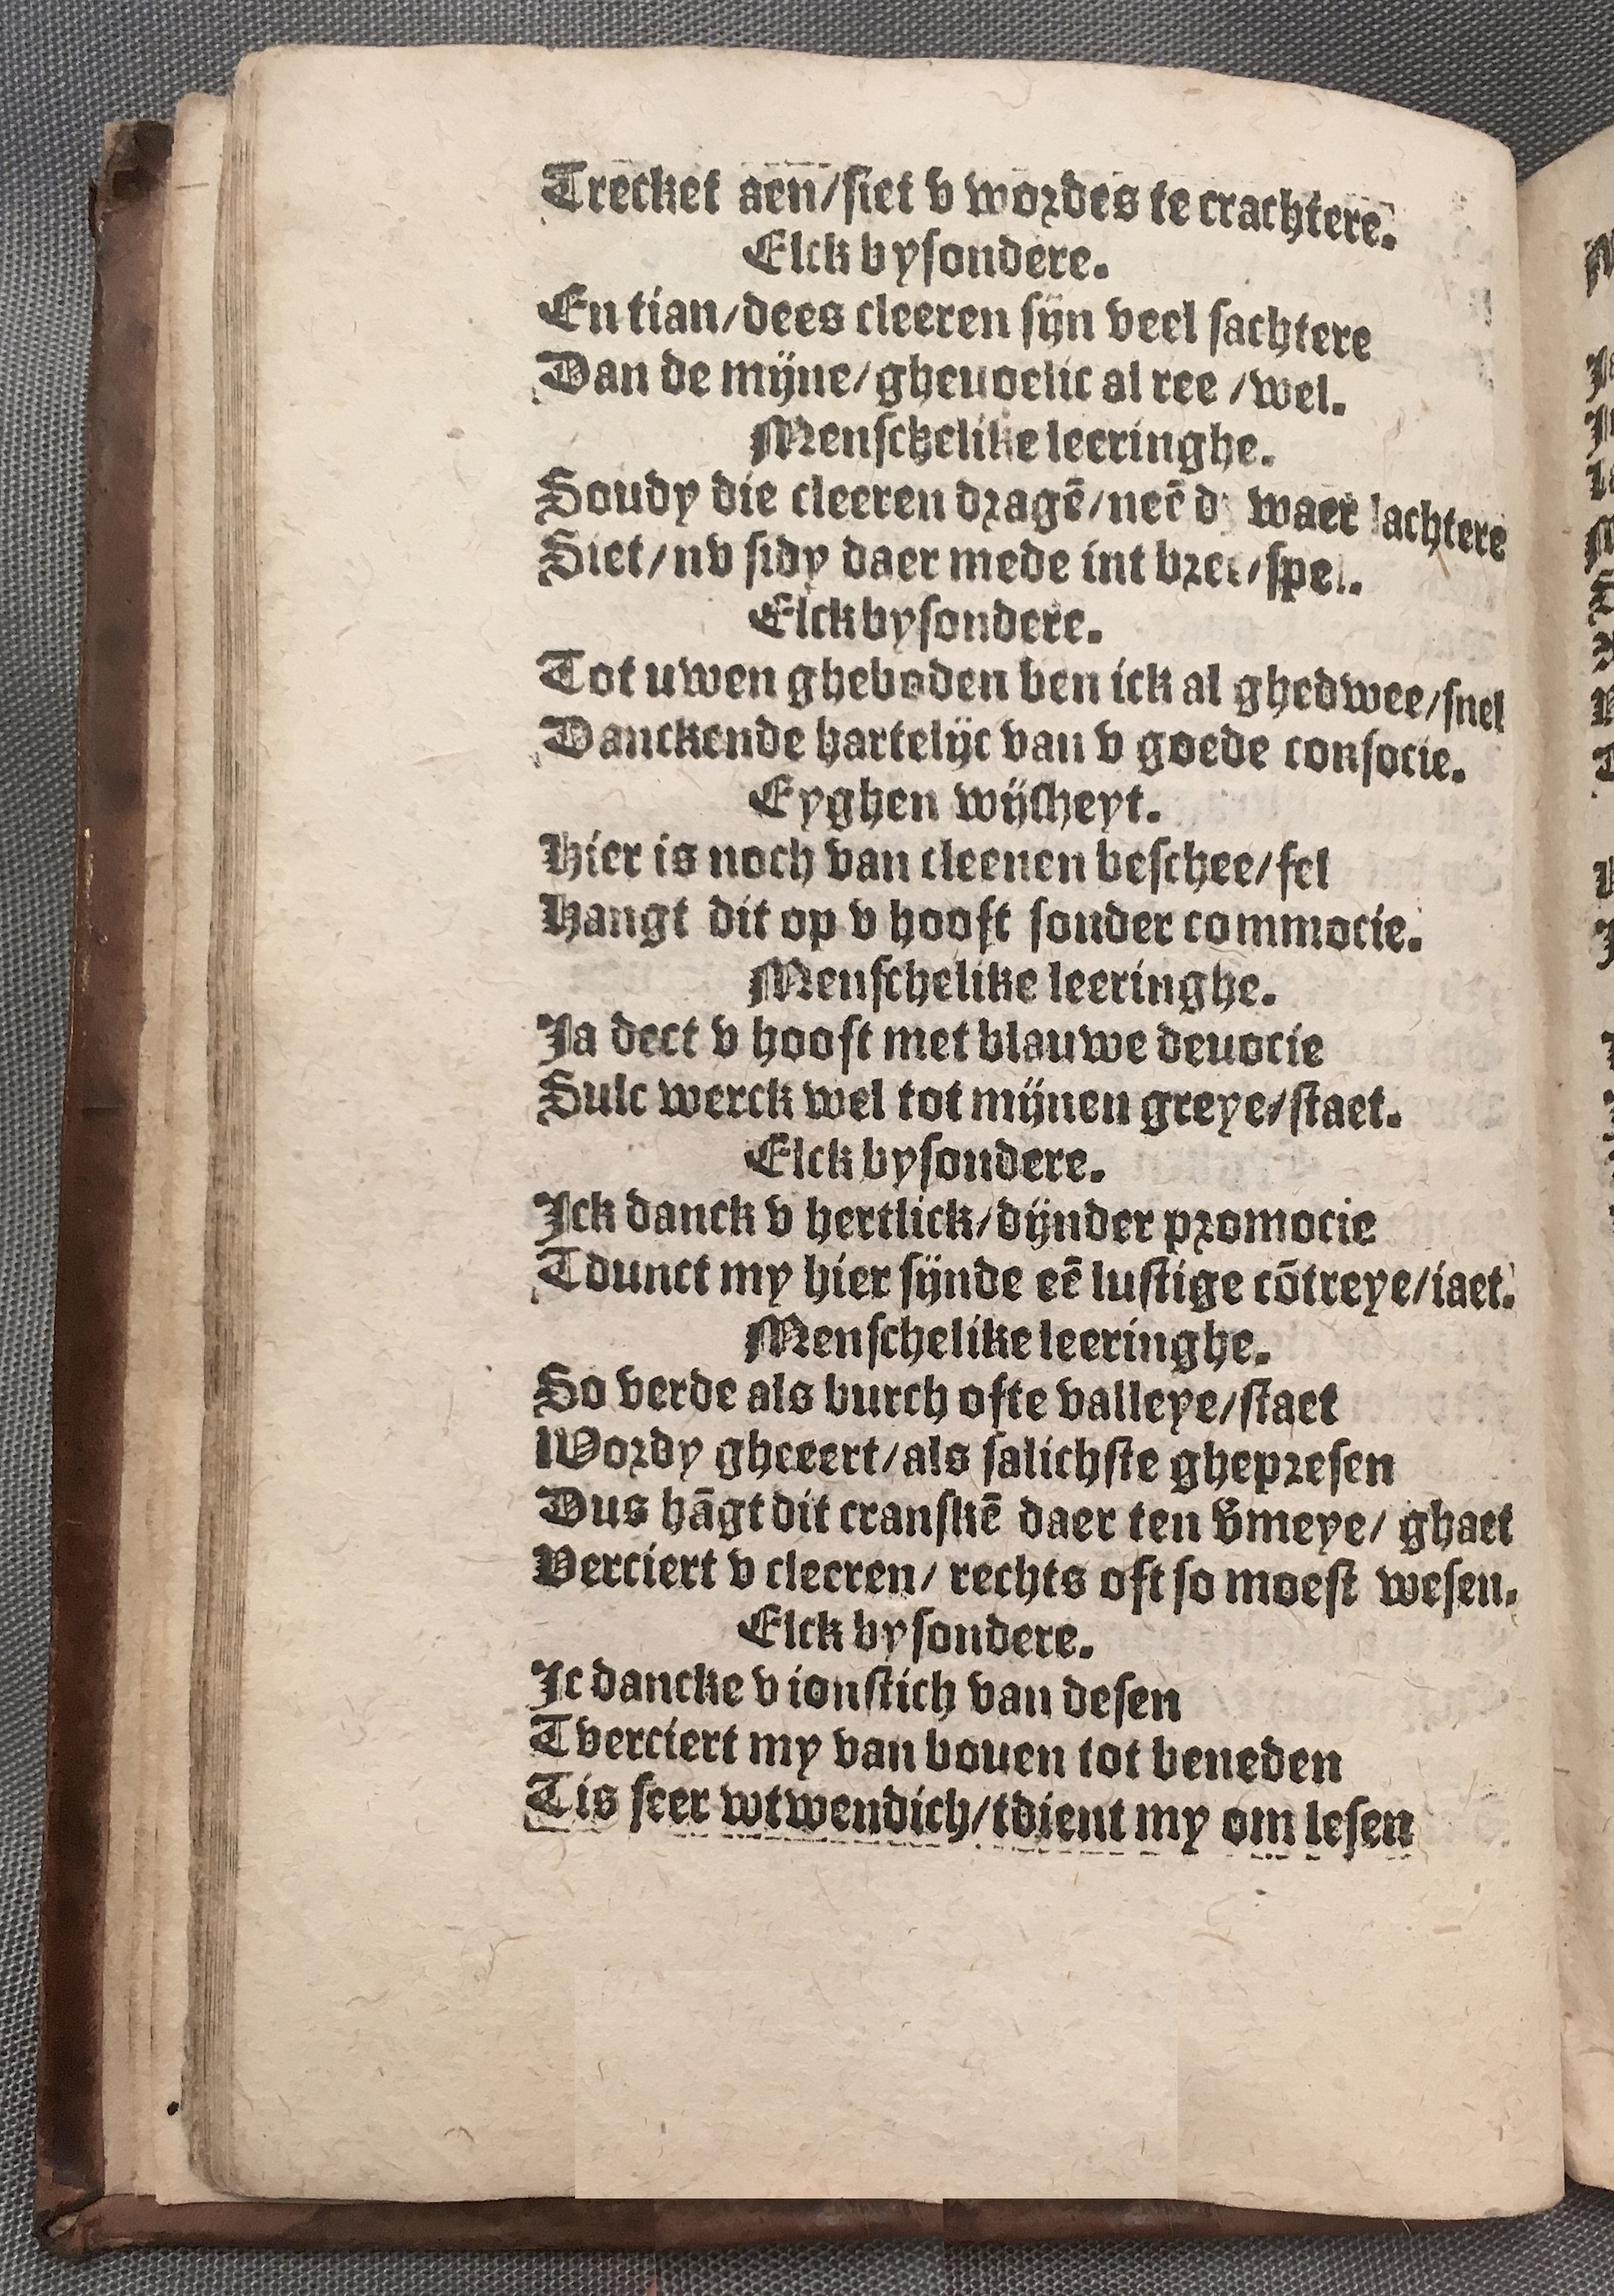 Trecket aen/siet v wordes te crachtere.
Elck bysondere.
En tian/dees cleeren sijn veel sachtere
Dan de mijne/gheuoelic al ree /wel.
Menschelike leeringhe.
Soudy die cleeren dragē/neē waer lachtere
Siet/nv sidy daer mede int bree/spel.
Elck bysondere.
Tot uwen gheboden ben ick al ghedwee/snel
Danckende hartelijc van v goede consocie.
Eyghen wijsheyt.
Hier is noch van cleenen beschee/fel
Hangt dit op v hooft sonder commocie.
Menschelike leeringhe.
Ja dect v hooft met blauwe deuocie
Sulc werck wel tot mijnen greye/staet.
Elck bysondere.
Ick danck v hertlick/dijnder promocie
Tdunct my hier sijnde eē lustige cōtreye/iaet.
Menschelike leeringhe.
So verde als burch ofte valleye/staet
Wordy gheeert/als salichste ghepresen
Dus hāgt dit cranskē daer ten v̄meye/ ghaet
Verciert v cleeren/ rechts oft so moest wesen.
Elck bysondere.
Ic dancke v ionstich van desen
Tverciert my van bouen tot beneden
Tis seer wtwendich/tdient my om lesen